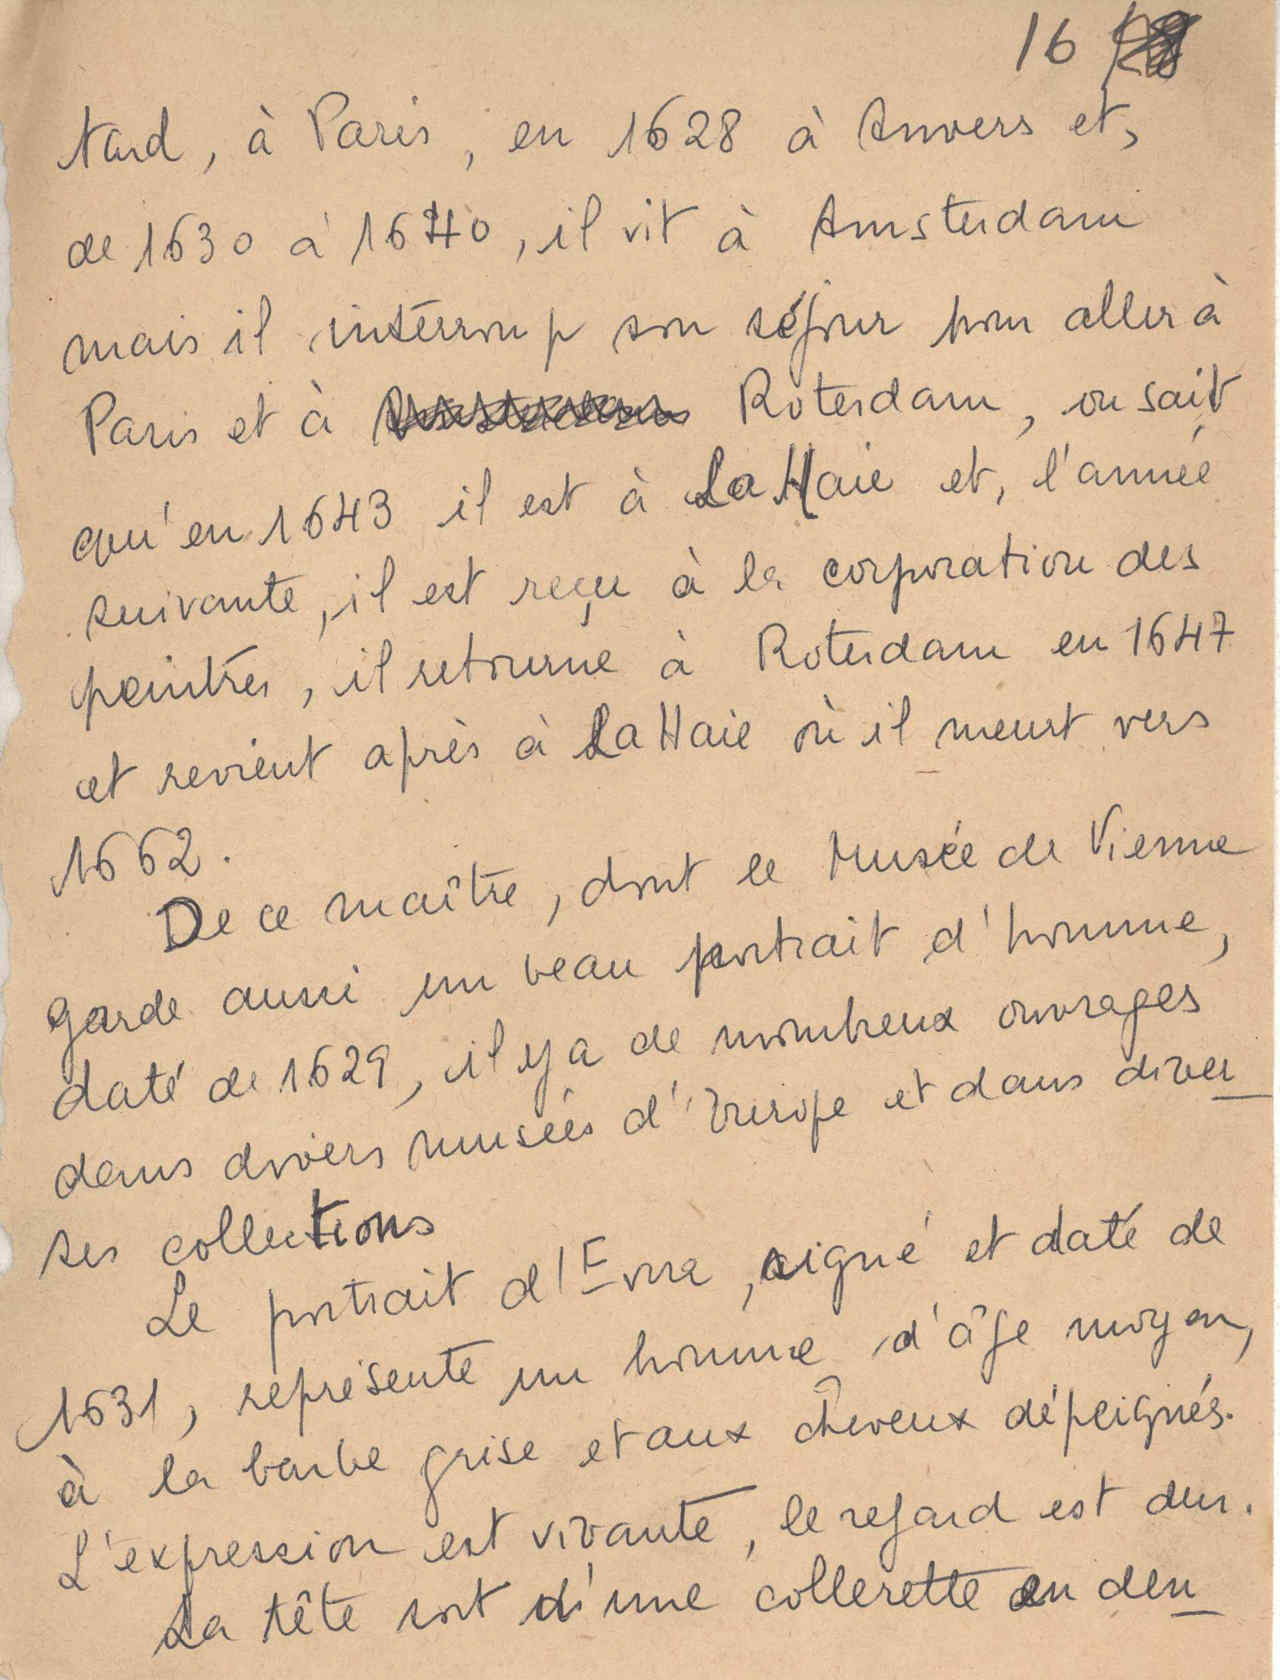 16
tard, à Paris, en 1628 à Anvers et,
de 1630 à 1640, il vit à Amsterdam
mais il interromp son séjour pour aller à
Paris et à Roterdam, on sait
qu'en 1643 il est à La Haie et, l'année
suivante, il est reçu à la corporation des
peintres, il retourne à Roterdam en 1647
et revient après à La Haie où il meurt vers
1662.
De ce maître, dont le Musée de Vienne
garde aussi un beau portrait d'homme,
daté de 1629, il y a de nombreux ouvrages
dans divers musées d'Europe et dans diver_
ses collections
Le portrait d'Evora, signé et daté de
1631, représente un homme d'âge moyen,
à la barbe grise et aux cheveux dépeignés.
L'expression est vivante, le regard est dur.
La tête sort d'une collerette en den_